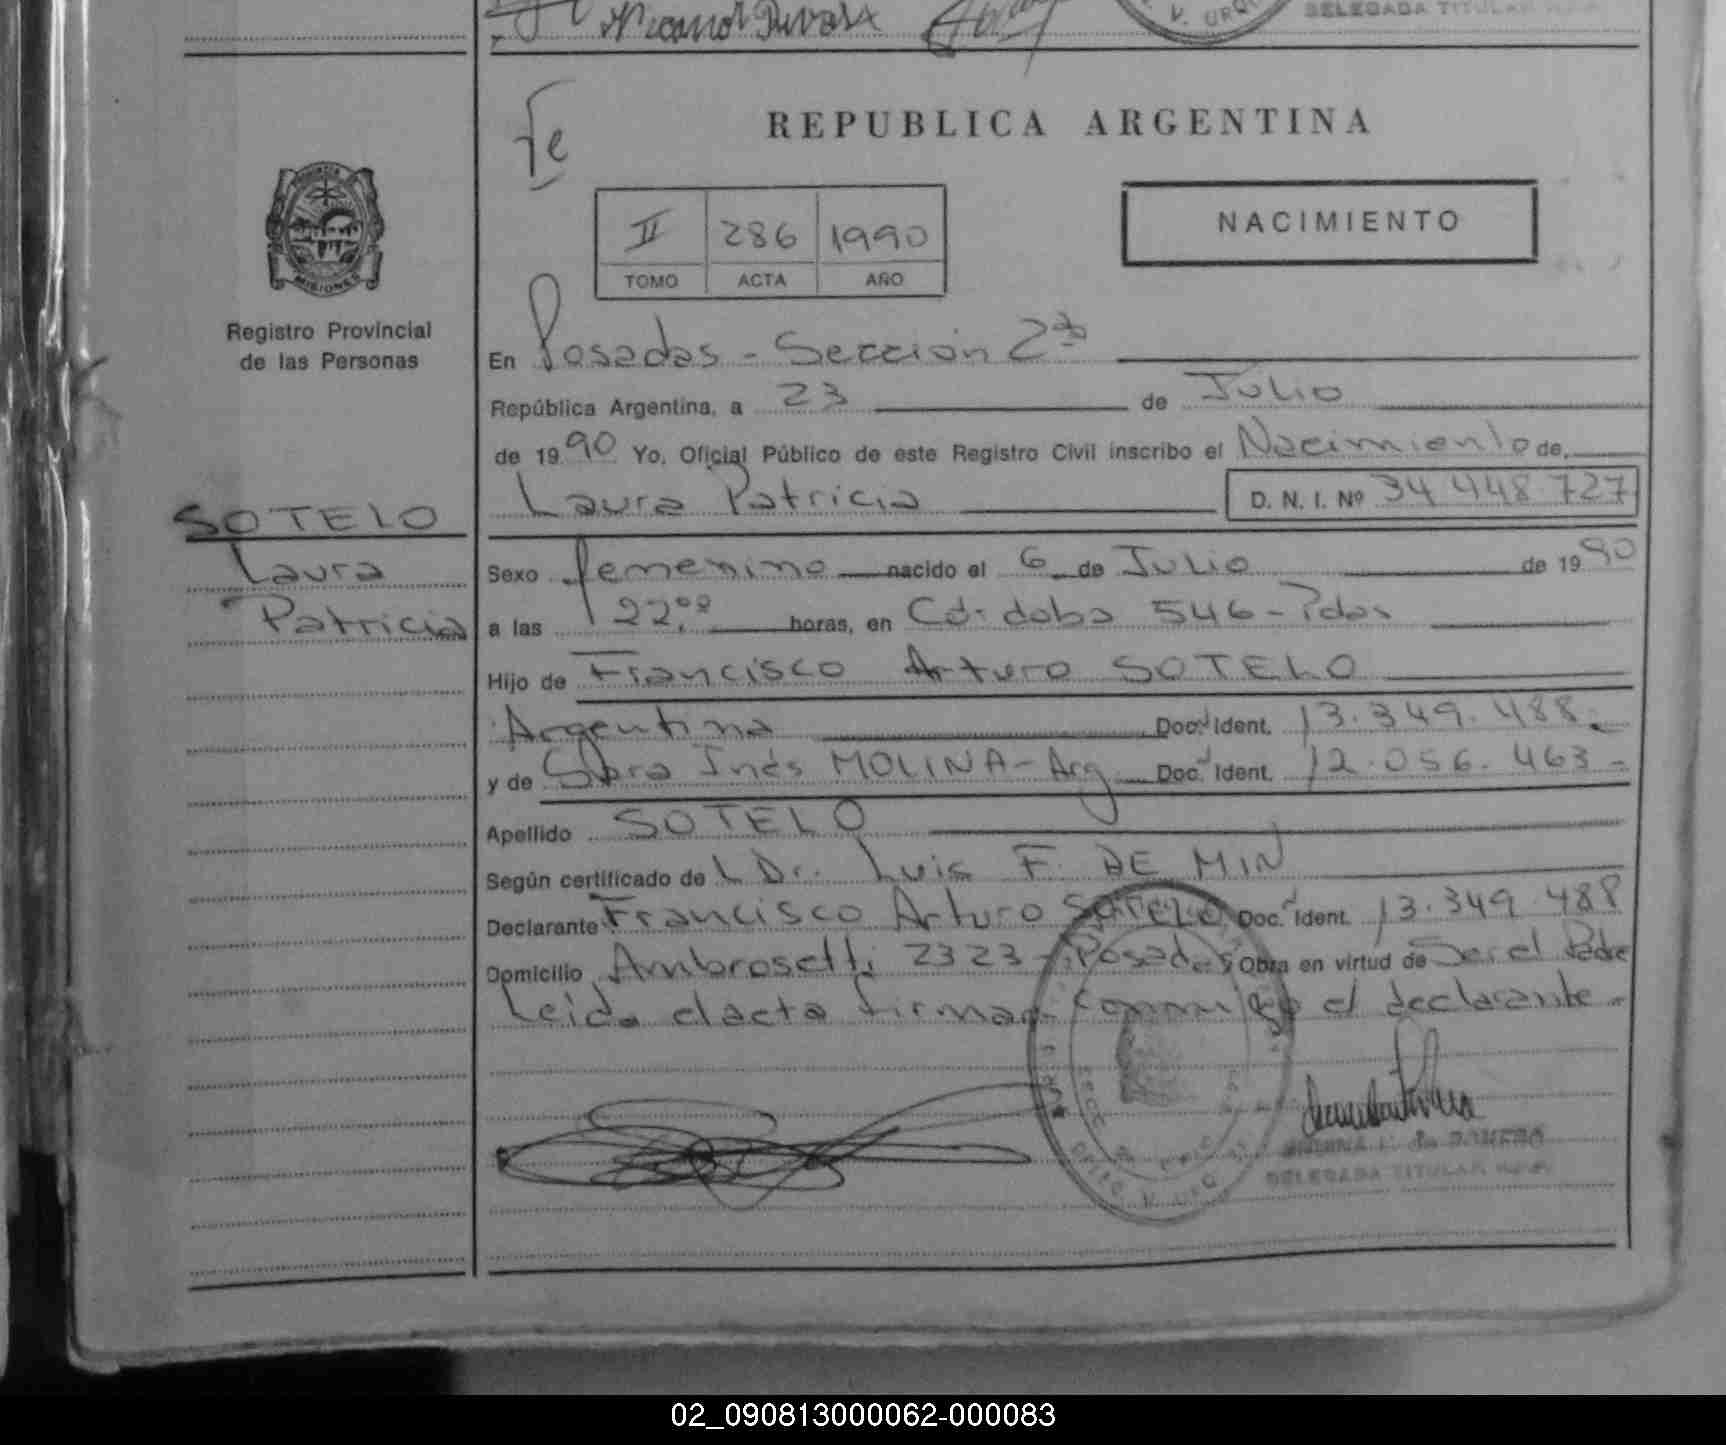 Nicanor
V. URQ
DELEGADA TITULAR
Fe
REPUBLICA ARGENTINA
MISIONES
Registro Provincial
de las Personas
II 286 1990
TOMO ACTA AÑO
NACIMIENTO
En Posadas - Sección 2da
República Argentina, a 23 de Julio
de 1990 Yo, Oficial Público de este Registro Civil inscribo el Nacimiento de
Laura Patricia D. N. I. Nº 34 448 727
SOTELO
Laura
Patricia
Sexo femenino nacido el 6 de Julio de 1990
a las 22,00 horas, en Córdoba 546 - Pdas
Hijo de Francisco Arturo SOTELO
Argentina Doc. Ident. 13.349.488.
y de Sara Inés MOLINA - Arg Doc. Ident. 12.056.463 -
Apellido SOTELO
Según certificado de L Dr. Luis F. DE MIN
Declarante Francisco Arturo SOTELO Doc. Ident. 13.349.488
Domicilio Ambrosetti 2323 - Posadas Obra en virtud de Ser el Padre
Leida el acta firman conmigo el declarante -
DELEG. V. URQ
DELEGADA TITULAR
02_090813000062-000083